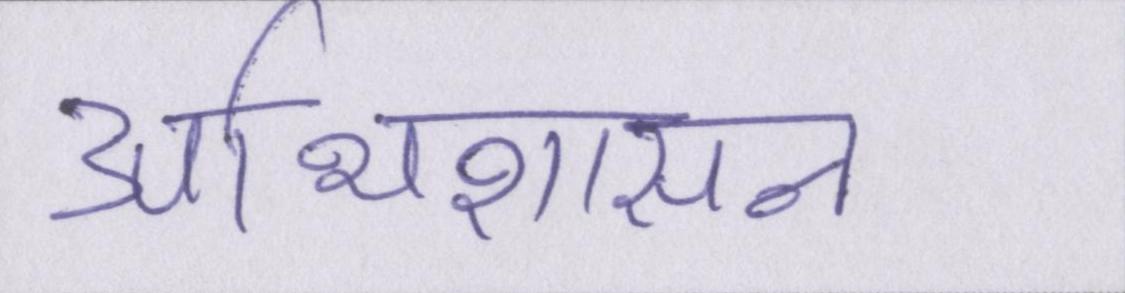 अधिशासन